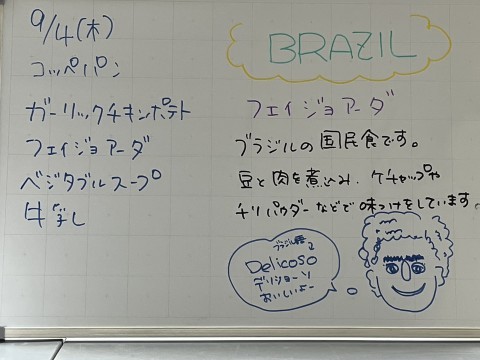 9/4(木)
コッペパン
ガーリックチキンポテト
フェイジョアーダ
ベジタブルスープ
牛乳
BRAZIL
フェイジョアーダ
ブラジルの国民食です。
豆と肉を煮込み、ケチャップや
チリパウダーなどで味つけをしています。
ブラジル産
Delicoso
デリショーソ
おいしいよー